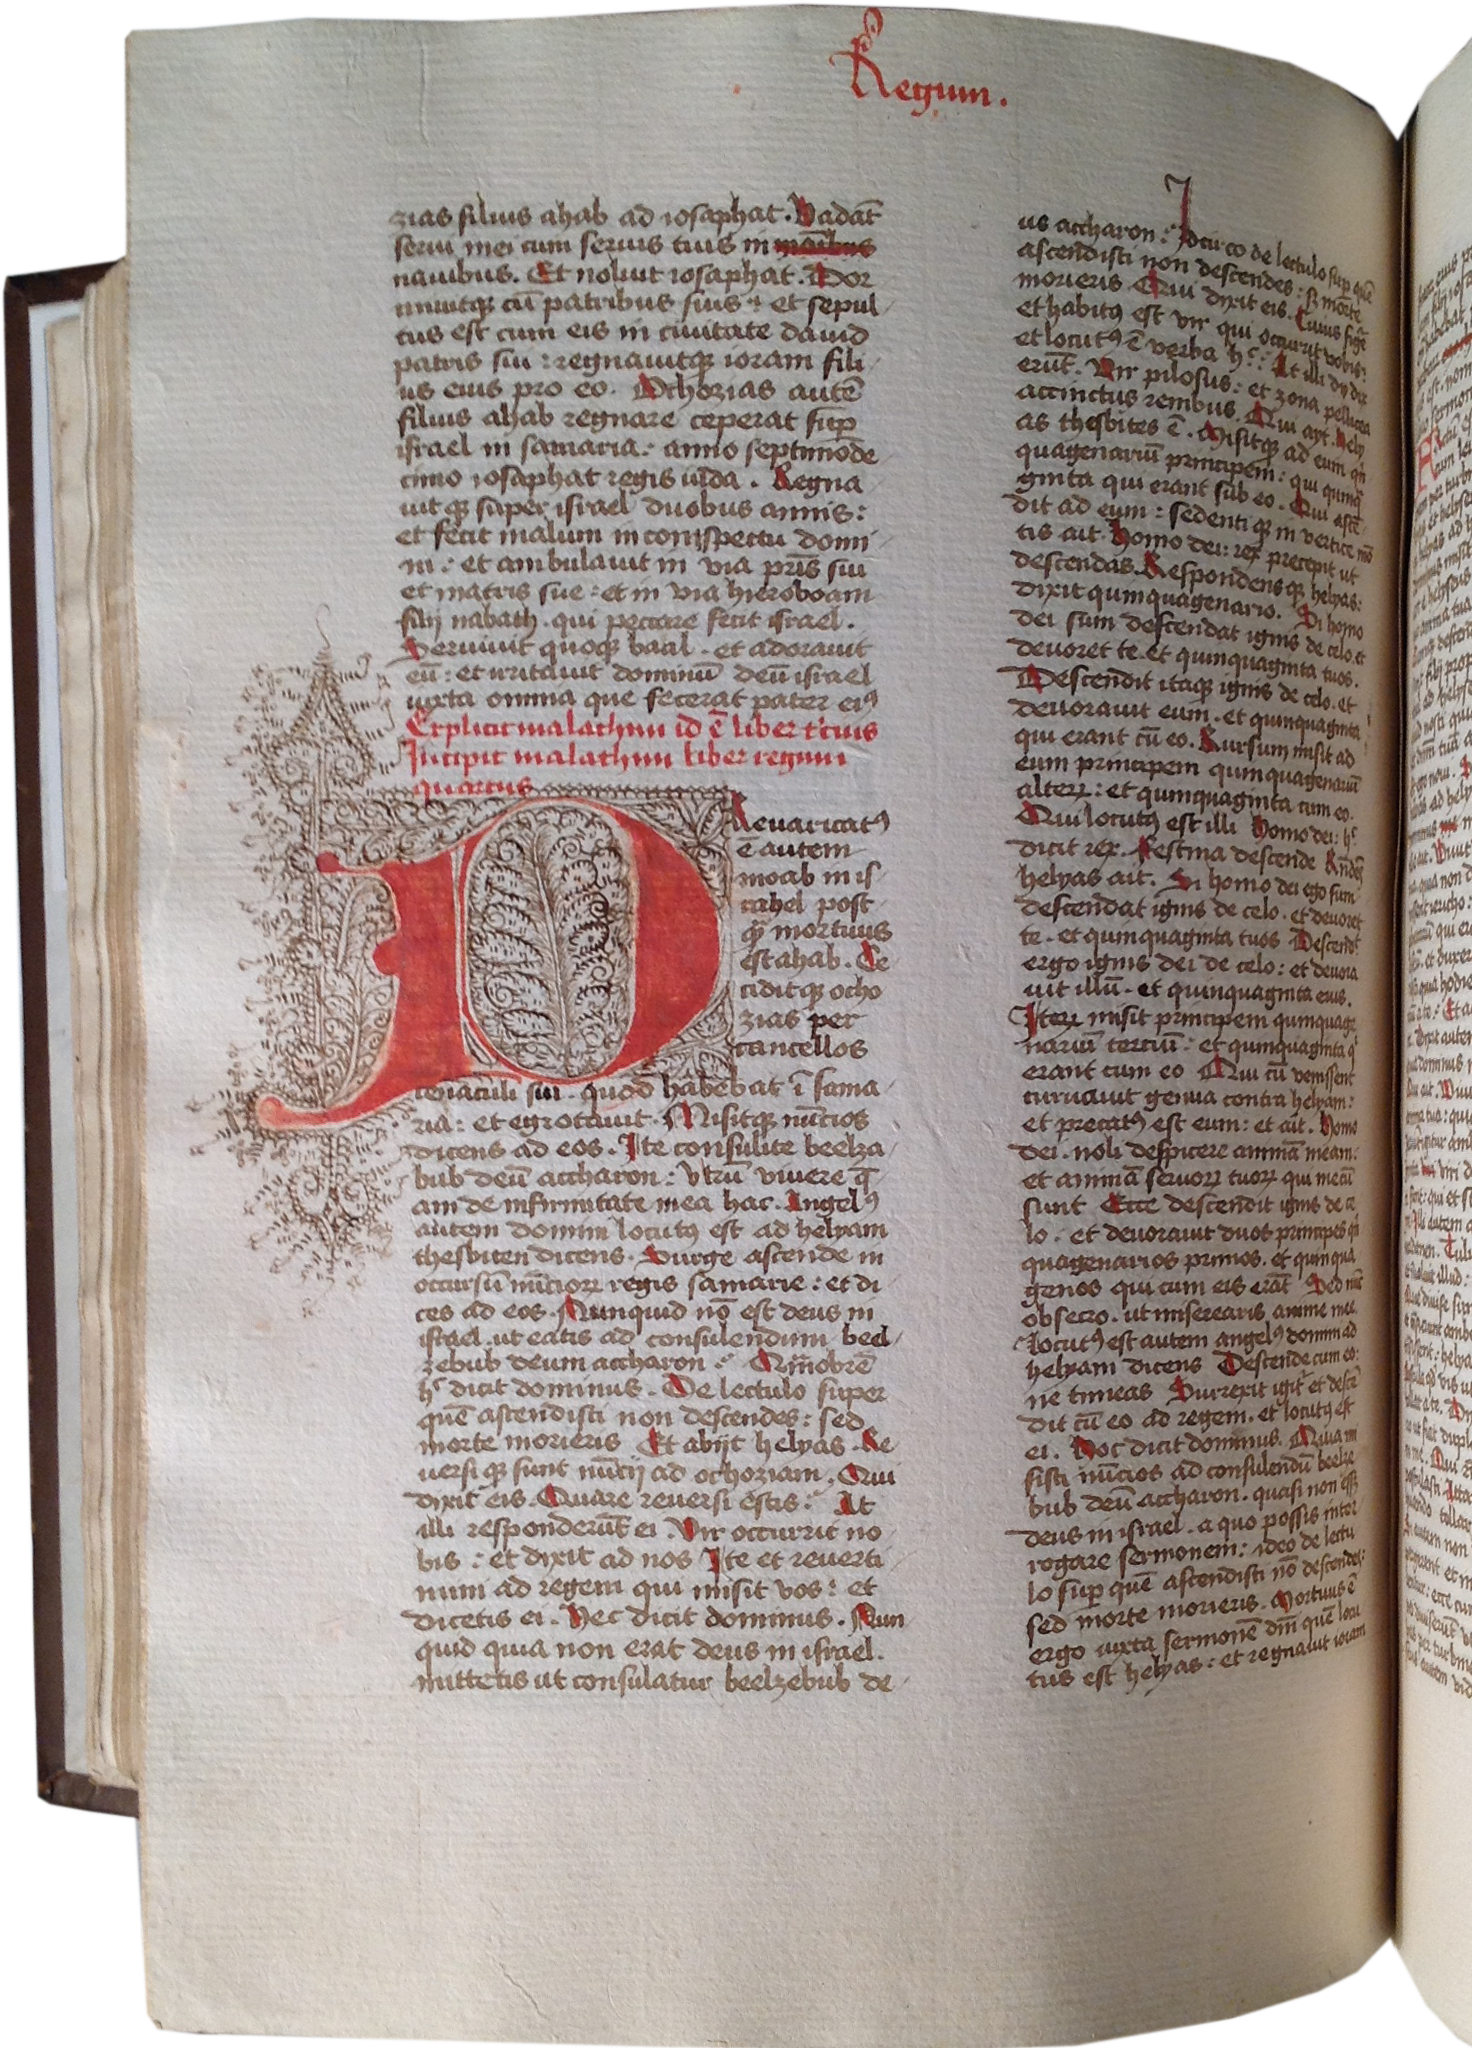 Regum.
zias filius ahab ad iosaphat. Vadāt
serui mei cum seruis tuis in manibus
nauibus. Et noluit iosaphat. Dor
miuitqꝫ cū patribus suis: et sepul
tus est cum eis in ciuitate dauid
patris sui: regnauitqꝫ ioram fili
us eius pro eo. Ochozias autē
filius ahab regnare ceperat sup̄
israel in samaria: anno septimode
cimo iosaphat regis iuda. Regna
uitqꝫ super israel duobus annis:
et fecit malum in conspectu domi
ni: et ambulauit in via pr̄is sui
et matris sue: et in via hieroboam
filij nabath. qui peccare fecit israel.
Seruiuit quoqꝫ baal. et adorauit
eū: et irritauit dominū deū israel
iuxta omnia que fecerat pater eiꝰ
Explicit malachim id ē liber t'cius
Incipit malachim liber regum
quartus
P
Reuaricatꝰ
ē autem
moab in is
rahel post
qꝫ mortuus
est ahab. Ce
ciditqꝫ ocho
zias per
cancellos
cenaculi sui. quod habebat ī sama
ria: et egrotauit. Misitqꝫ nūcios
dicens ad eos. Ite consulite beelza
bub deū accharon: vtrū viuere q̄
am de infirmitate mea hac. Angelꝰ
autem domini locutꝰ est ad helyam
thesbiten dicens. Surge ascende in
occursū nūcioꝝ regis samarie: et di
ces ad eos. Nunquid nō est deus in
israel. ut eatis ad consulendum beel
zebub deum accharon: Quāobrē
h̾ dicit dominus. De lectulo super
quē ascendisti non descendes: sed
morte morieris Et abijt helyas. Re
uersiqꝫ sunt nūcij ad ochoziam. Qui
dixit eis. Quare reuersi estis: At
illi responderūt ei. Vir occurrit no
bis: et dixit ad nos Ite et reuerti
mini ad regem qui misit vos: et
dicetis ei. Hec dicit dominus. Nun
quid quia non erat deus in israel.
mittetis ut consulatur beelzebub de
us accharon: Idcirco de lectulo sup̄ quē
ascendisti non descendes: s; morte
morieris Qui dixit eis. Cuius figē
et habitꝰ est vir qui occurrit vobis:
et locutꝰ ē verba h̾: At illi dix
erūt. Vir pilosus: et zona pellicea
accinctus renibus. Qui ayt. Hely
as thesbites ē. Misitqꝫ ad eum qn
quagenariū principem: qui quinqͣ
ginta qui erant sub eo. Qui ascē
dit ad eum: sedentiqꝫ in vertice mō
tis ait. Homo dei: rex precepit ut
descendas. Respondensqꝫ helyas:
dixit quinquagenario. Si homo
dei sum descendat ignis de celo. et
deuoret te. et quinquaginta tuos.
Descendit itaqꝫ ignis de celo. et
deuorauit eum. et quinquaginta
qui erant cū eo. Rursum misit ad
eum principem quinquagenariū
alteꝝ: et quinquaginta cum eo.
Qui locutꝰ est illi Homo dei: h̾
dicit rex. Festina descende Rn̄dēs
helyas ait. Si homo dei ego sum
descendat ignis de celo. et deuoret
te. et quinquaginta tuos Descendit
ergo ignis dei de celo: et deuora
uit illū. et quinquaginta eius.
Iteꝝ misit principem quinquage
nariū tertiū: et quinquaginta q̇
erant cum eo Qui cū venissent
curuauit genua contra helyam:
et precatꝰ est eum: et ait. Homo
dei. noli despicere animā meam:
et animā seruoꝝ tuoꝝ qui mecū
sunt Ecce descendit ignis de ce
lo. et deuorauit duos principes qn
quagenarios primos. et quinqua
genos qui cum eis erāt Sed nūc
obsecro. ut miserearis anime mee
Locutꝰ est autem angelꝰ domini ad
helyam dicens Descende cum eo:
ne timeas Surrexit igit̾ et descē
dit cū eo ad regem. et locutꝰ est
ei. Hoc dicit dominus. Quia mi
sisti nūcios ad consulendū beelze
bub deū accharon. quasi non eēt
deus in israel. a quo possis inter
rogare sermonem: ideo de lectu
lo sup̄ quē ascendisti nō descendes:
sed morte morieris. Mortuus ē
ergo iuxta sermonē dn̄i quē locu
tus est helyas: et regnauit ioram